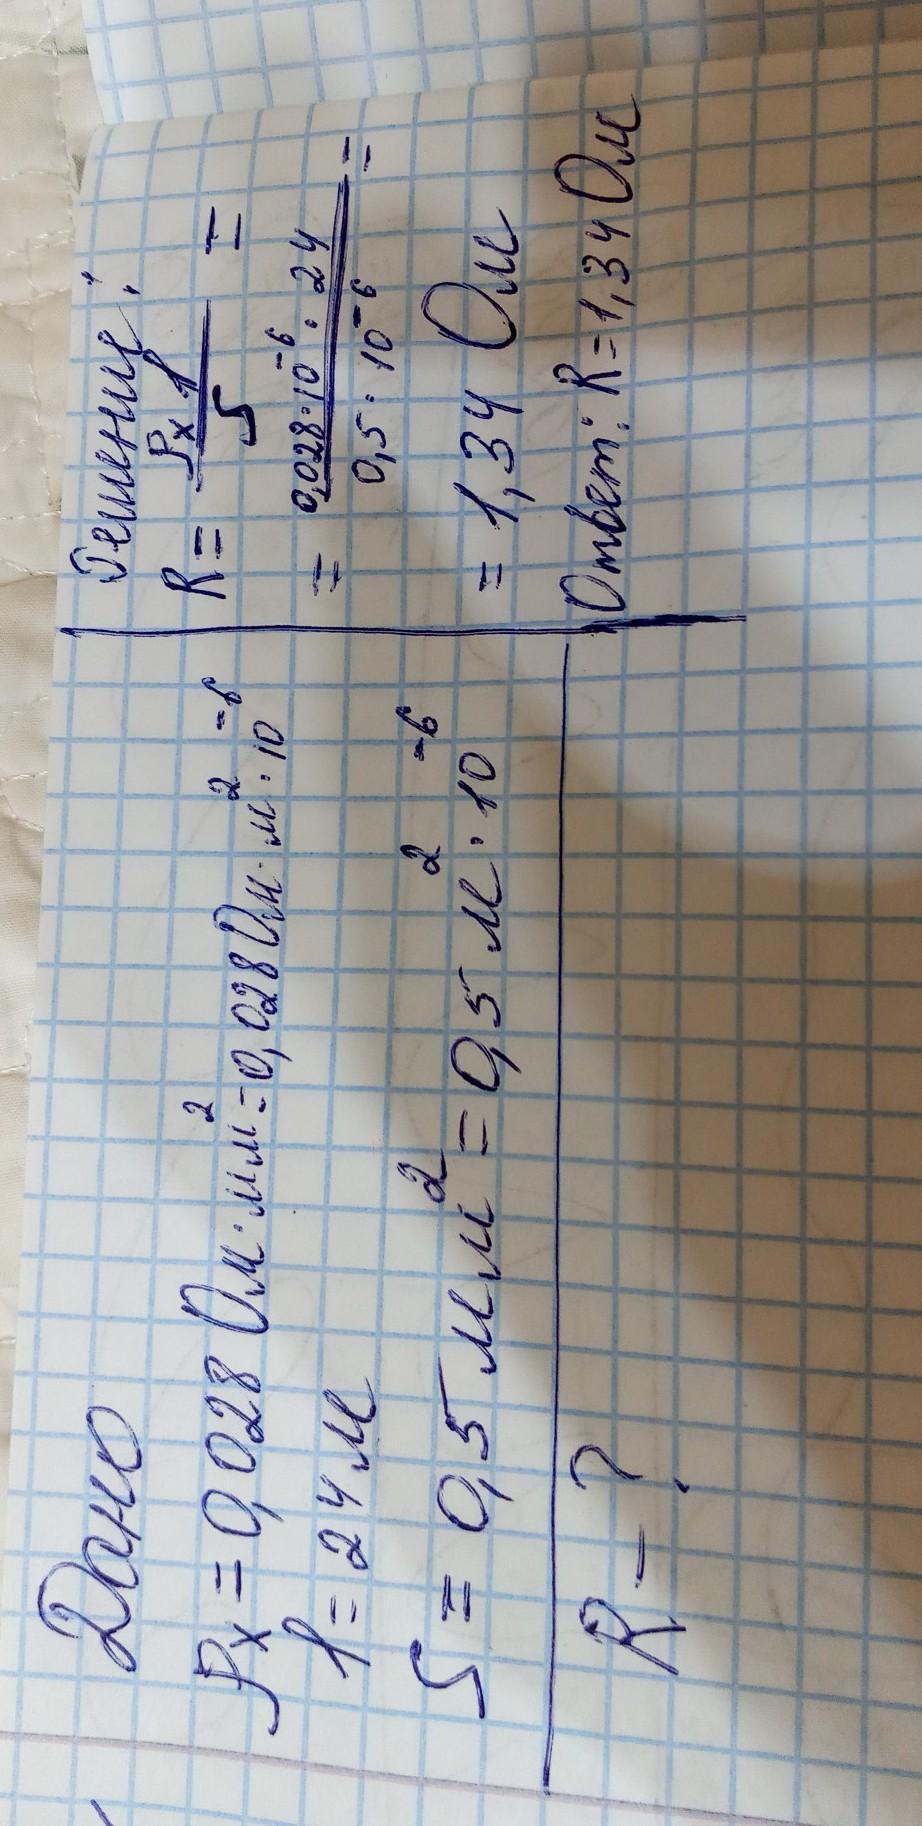 Дано
ρx = 0,028 Ом·мм² = 0,028 Ом·м²·10⁻⁶
l = 24 м
S = 0,5 мм² = 0,5 м²·10⁻⁶
R – ?
Решение:
R = ρx l / S =
= 0,028·10⁻⁶·24 / 0,5·10⁻⁶ =
= 1,34 Ом
Ответ: R = 1,34 Ом